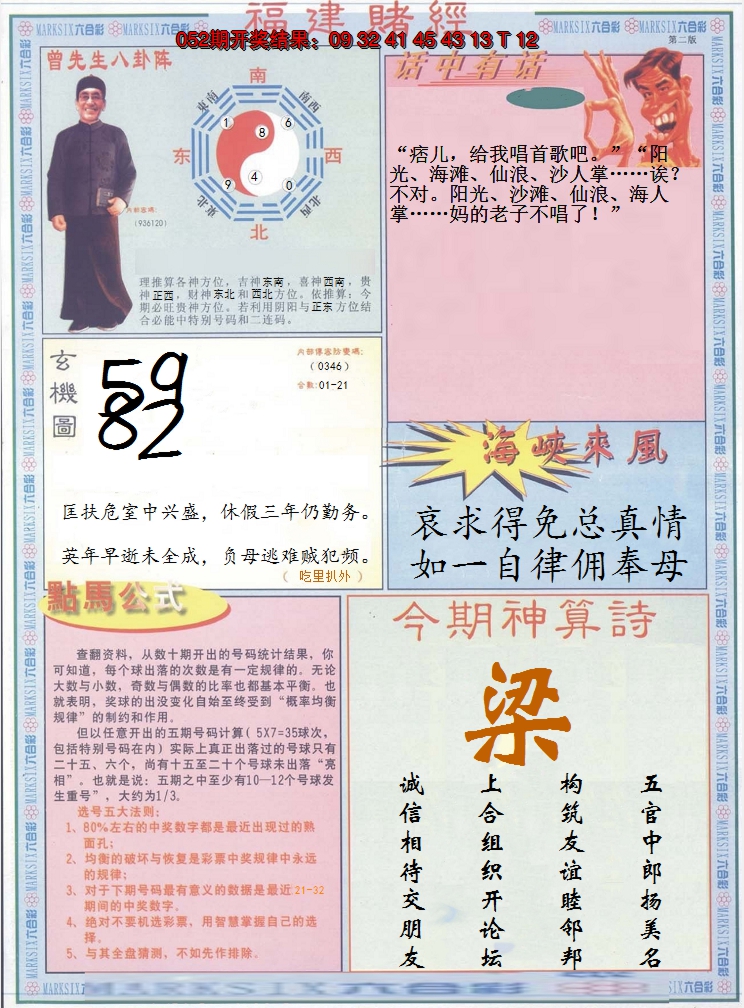 福建賭經
052期开奖结果：09 32 41 45 43 13 T 12
MARKSIX六合彩
第二版
曾先生八卦阵
南
东南
南西
1
8
6
东
西
9
4
0
东北
北西
北
内部密碼:
(936120)
理推算各神方位，吉神东南，喜神西南，贵
神正西，财神东北和西北方位。依推算：今
期必旺贵神方位。若利用阴阳与正东方位结
合必能中特别号码和二连码。
话中有话
“痞儿，给我唱首歌吧。”“阳
光、海滩、仙浪、沙人掌……诶？
不对。阳光、沙滩、仙浪、海人
掌……妈的老子不唱了！”
玄機圖
59
82
(0346)
合数:01-21
匡扶危室中兴盛，休假三年仍勤务。
英年早逝未全成，负母逃难贼犯频。
（ 吃里扒外 ）
海峽來風
哀求得免总真情
如一自律佣奉母
點馬公式
查翻资料，从数十期开出的号码统计结果，你
可知道，每个球出落的次数是有一定规律的。无论
大数与小数，奇数与偶数的比率也都基本平衡。也
就表明，奖球的出没变化自始至终受到“概率均衡
规律”的制约和作用。
但以任意开出的五期号码计算( 5X7=35球次，
包括特别号码在内) 实际上真正出落过的号球只有
二十五、六个，尚有十五至二十个号球未出落“亮
相”。也就是说：五期之中至少有10—12个号球发
生重号”，大约为1/3。
选号五大法则:
1、80%左右的中奖数字都是最近出现过的熟
面孔;
2、均衡的破坏与恢复是彩票中奖规律中永远
的规律;
3、对于下期号码最有意义的数据是最近21-32
期间的中奖数字。
4、绝对不要机选彩票，用智慧掌握自己的选
择。
5、与其全盘猜测，不如先作排除。
今期神算詩
梁
五官中郎扬美名
构筑友谊睦邻邦
上合组织开论坛
诚信相待交朋友